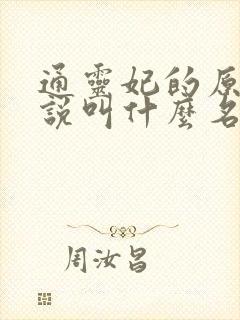 通靈妃的原
說叫什麼名
周汝昌